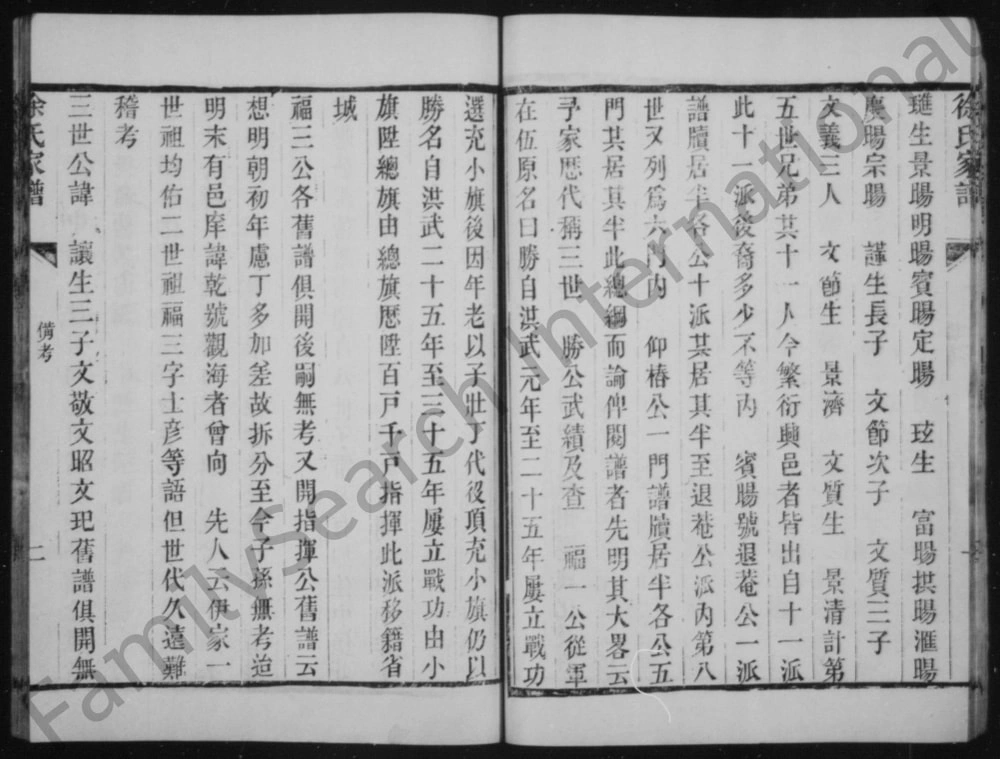 徐氏家譜
璡生景暘明暘賓暘定暘 玹生 富暘拱暘滙暘
慶暘宗暘 謹生長子 文節次子 文質三子
文義三人 文節生 景濟 文質生 景清計第
五世兄弟其十一人今繁衍興邑者皆出自十一派
此十一派後裔多少不等內 賓暘號退菴公一派
譜牘居半各公十派其居其半至退菴公派內第八
世又列爲六門內 仰椿公一門譜牘居半各公五
門其居其半此總綱而論俾閱譜者先明其大畧云
予家歷代稱三世 勝公武績及查 福一公從軍
在伍原名曰勝自洪武元年至二十五年屢立戰功
選充小旗後因年老以子壯丁代役頂充小旗仍以
勝名自洪武二十五年至三十五年屢立戰功由小
旗陞總旗由總旗歷陞百戸千戸指揮此派移籍省
城
福三公各舊譜俱開後嗣無考又開指揮公舊譜云
想明朝初年慮丁多加差故拆分至今子孫無考迨
明末有邑庠諱乾號觀海者曾向 先人云伊家一
世祖均佑二世祖福三字士彥等語但世代久遠難
稽考
三世公諱 讓生三子文敬文昭文玘舊譜俱開無
徐氏家譜
備考
二
FamilySearch International